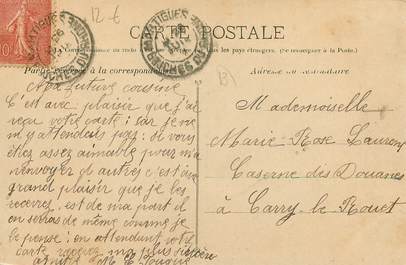 12 €
MARTIGUES
BOUCHES DU RHONE
CARTE POSTALE
tous les pays étrangers. (Se renseigner à la Poste.)
Partie réservée à la correspondance
Adresse du destinataire
Ma future cousine
C'est avec plaisir que j'ai
reçu votre carte; car je ne
m'y attendais pas; si vous
étiez assez aimable pour m'en
renvoyer d'autres c'est du
grand plaisir que je les
recevrez, est de ma part il
en serras de même comme je
le pense; en attendant votre
carte recevez ma plus sincère
amitié
Mademoiselle
Marie-Rose Laurent
Caserne des Douanes
à Carry-le-Rouet